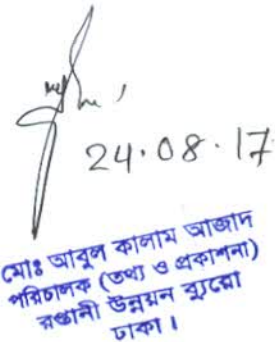 24.08.17
মোঃ আবুল কালাম আজাদ
পরিচালক (তথ্য ও প্রকাশনা)
রপ্তানী উন্নয়ন ব্যুরো
ঢাকা।